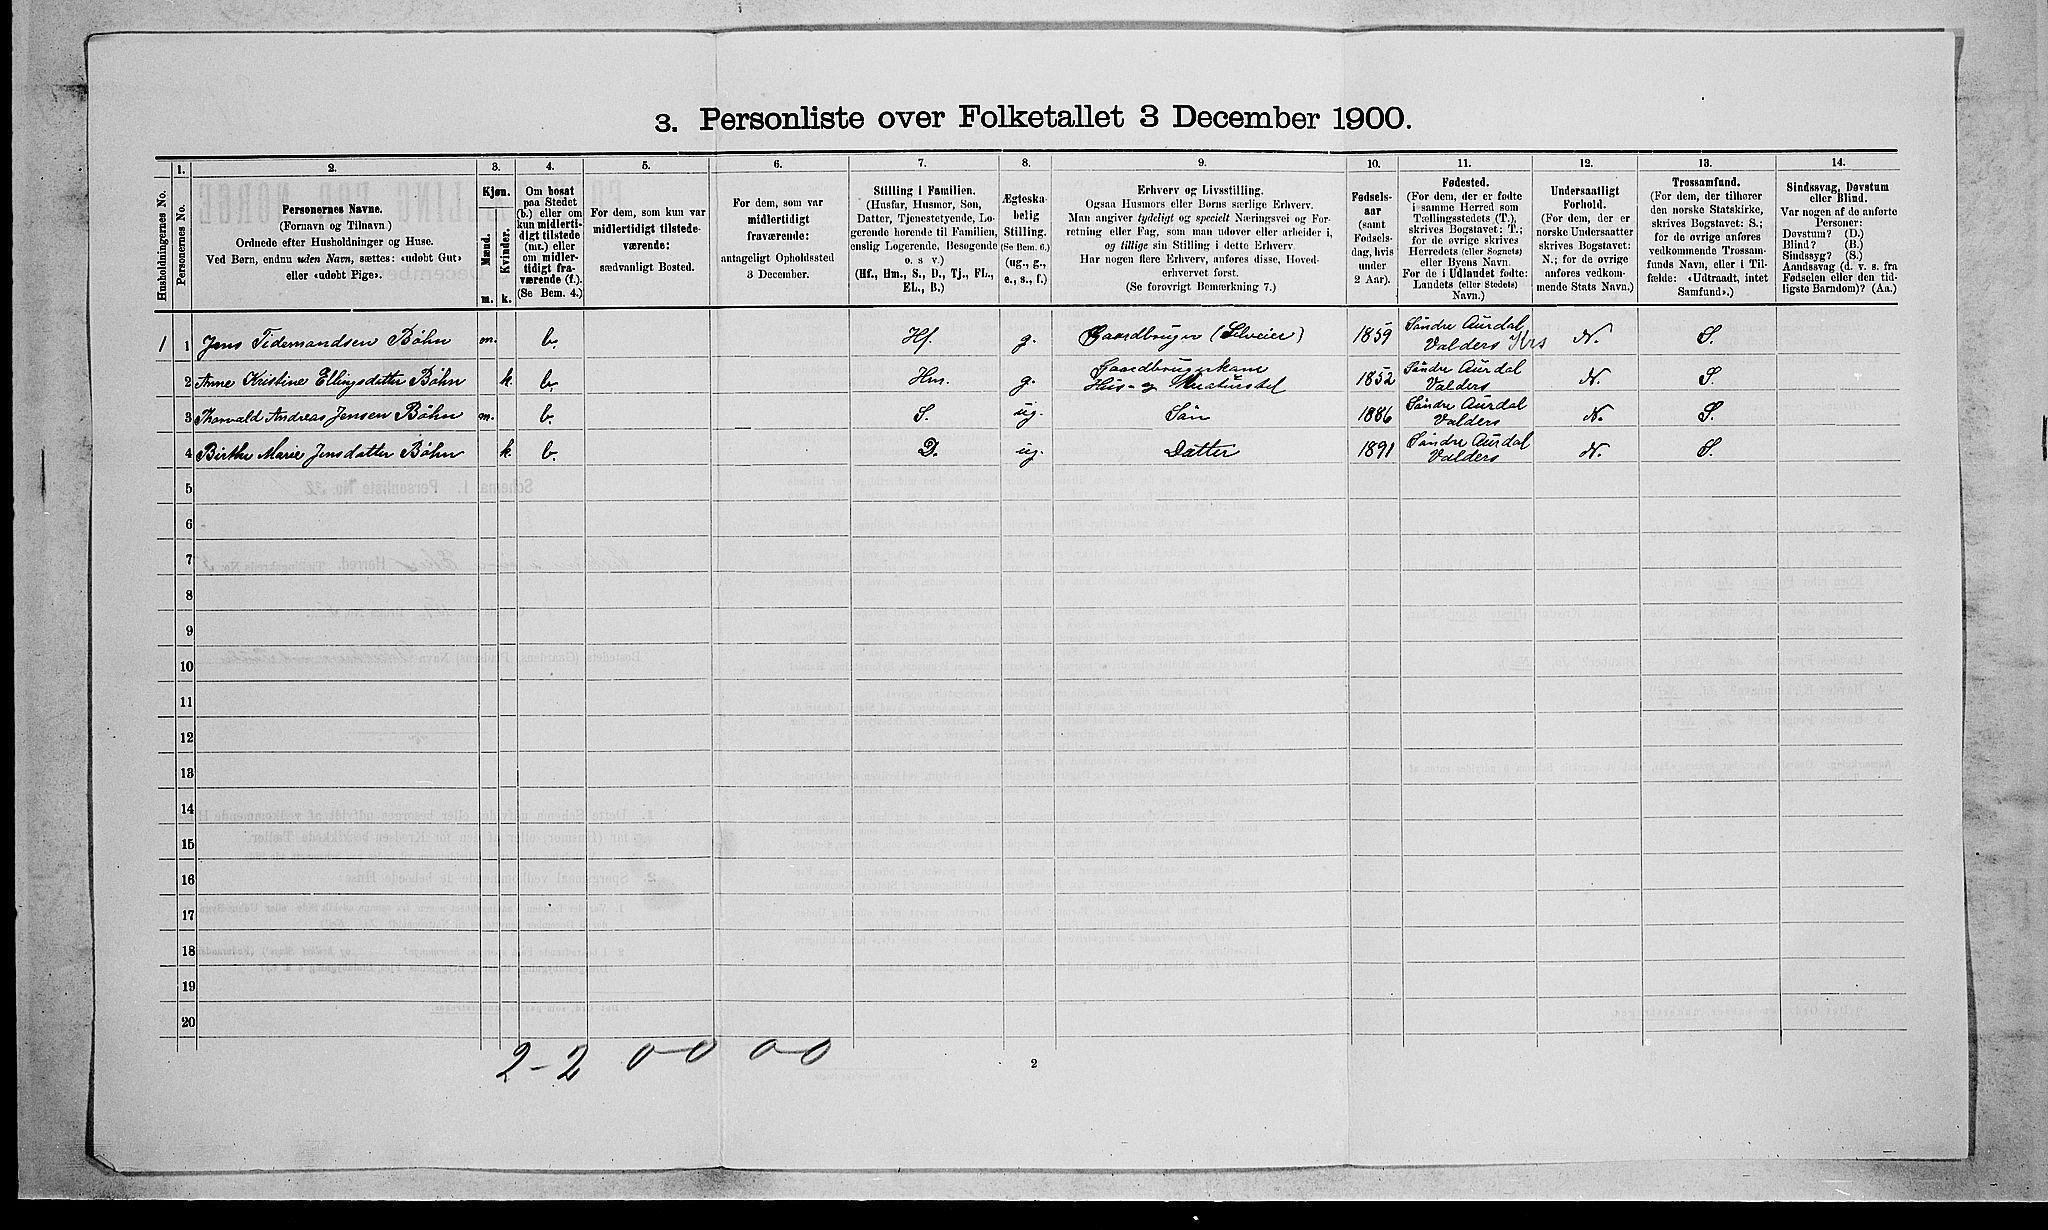 3. Personliste over Folketallet 3 December 1900.
Husholdningernes No.
1.
Personernes No.
2.
Personernes Navne.
(Fornavn og Tilnavn.)
Ordnede efter Husholdninger og Huse.
Ved Børn, endnu uden Navn, sættes: «udøbt Gut»
eller «udøbt Pige».
3.
Kjøn.
Mænd.
Kvinder.
m. k.
4.
Om bosat
paa Stedet
(b.) eller om
kun midlerti-
digt tilstede
(mt.) eller
om midler-
tidigt fra-
værende (f.).
(Se Bem. 4.)
5.
For dem, som kun var
midlertidigt tilstede-
værende:
sædvanligt Bosted.
6.
For dem, som var
midlertidigt
fraværende:
antageligt Opholdssted
3 December.
7.
Stilling i Familien.
(Husfar, Husmor, Søn,
Datter, Tjenestetyende, Lo-
gerende hørende til Familien,
enslig Logerende, Besøgende
o. s v.)
(Hf., Hm., S., D., Tj., FL.,
EL., B.)
8.
Ægteska-
belig
Stilling.
(Se Bem. 6.)
(ug., g.,
e., s., f.)
9.
Erhverv og Livsstilling.
Ogsaa Husmors eller Børns særlige Erhverv.
Man angiver tydeligt og specielt Næringsvei og For-
retning eller Fag, som man udover eller arbeider i,
og tillige sin Stilling i dette Erhverv.
Har nogen flere Erhverv, anføres disse, Hoved-
erhvervet først.
(Se forøvrigt Bemærkning 7.)
10.
Fødsels-
aar
(samt
Fødsels-
dag, hvis
under
2 Aar).
11.
Fødested.
(For dem, der er fødte
i samme Herred som
Tællingsstedets (T.),
skrives Bogstavet: T.;
for de øvrige skrives
Herredets (eller Sognets)
eller Byens Navn.
For de i Udlandet fødte:
Landets (eller Stedets)
Navn.)
12.
Undersaatligt
Forhold.
(For dem, der er
norske Undersaatter
skrives Bogstavet:
N.; for de øvrige
anføres vedkom-
mende Stats Navn.)
13.
Trossamfund.
(For dem, der tilhører
den norske Statskirke,
skrives Bogstavet: S.;
for de øvrige anføres
vedkommende Trossam-
funds Navn, eller i Til-
fælde: «Udtraadt, intet
Samfund».)
14.
Sindssvag, Døvstum
eller Blind.
Var nogen af de anførte
Personer:
Døvstum? (D.)
Blind? (B.)
Sindssyg? (S.)
Aandssvag (d. v. s. fra
Fødselen eller den tid-
ligste Barndom)? (Aa.)
1 1 Jens Tidemandsen Bøhn m. b. Hf. g. Gaardbruger (Selveier) 1859 Søndre Aurdal Valders Krs N. S.
2 Anne Kristine Ellingsdatter Bøhn k. b. Hm. g. Gaardbrugerkone Hus- og Kreaturstel 1852 Søndre Aurdal Valders N. S.
3 Thorvald Andreas Jensen Bøhn m. b. S. ug. Søn 1886 Søndre Aurdal Valders N. S.
4 Birthe Marie Jensdatter Bøhn k. b. D. ug. Datter 1891 Søndre Aurdal Valders N. S.
5
6
7
8
9
10
11
12
13
14
15
16
17
18
19
20
2-2 00 00
2